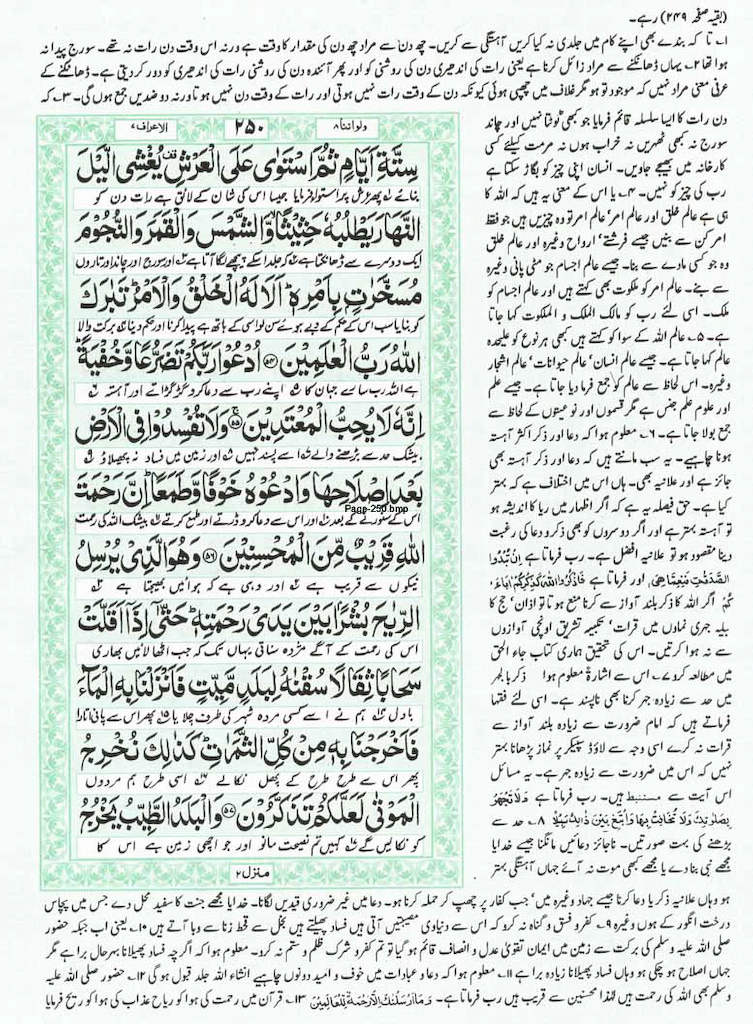 (بقیہ صفحہ ۲۴۹) رہے۔
۱۔ تا کہ بندے بھی اپنے کام میں جلدی نہ کیا کریں آہستگی سے کریں۔ چھ دن سے مراد چھ دن کی مقدار کا وقت ہے ورنہ اس وقت دن رات نہ تھے۔ سورج پیدا نہ
ہوا تھا ۲۔ یہاں ڈھانکنے سے مراد زائل کرنا ہے یعنی رات کی اندھیری دن کی روشنی کو اور پھر آئندہ دن کی روشنی رات کی اندھیری کو دور کر دیتی ہے۔ ڈھانکنے کے
عرفی معنی مراد نہیں کہ موجود تو ہو مگر غلاف میں چھپی ہوئی کیونکہ دن کے وقت رات نہیں ہوتی اور رات کے وقت دن نہیں ہوتا ورنہ دو ضدیں جمع ہوں گی۔ ۳۔ کہ
دن رات کا ایسا سلسلہ قائم فرمایا جو کبھی ٹوٹتا نہیں اور چاند
سورج نہ کبھی ٹھہریں نہ خراب ہوں نہ مرمت کیلئے کسی
کارخانہ میں بھیجے جاویں۔ انسان اپنی چیز کو بگاڑ سکتا ہے
رب کی چیز کو نہیں۔ ۴۔ یا اس کے معنی یہ ہیں کہ اللہ کا
ہی ہے عالم خلق اور عالم امر‘ عالم امر تو وہ چیزیں ہیں جو فقط
امر کن سے بنیں جیسے فرشتے‘ ارواح وغیرہ اور عالم خلق
وہ جو کسی مادے سے بنا۔ جیسے عالم اجسام جو مٹی پانی وغیرہ
سے بنے۔ عالم امر کو ملکوت بھی کہتے ہیں اور عالم اجسام کو
ملک۔ اسی لئے رب کو مالک الملک و الملکوت کہا جاتا
ہے۔ ۵۔ عالم اللہ کے سوا کو کہتے ہیں کبھی ہر نوع کو علیحدہ
عالم کہا جاتا ہے۔ جیسے عالم انسان‘ عالم حیوانات‘ عالم اشجار
وغیرہ۔ اس لحاظ سے عالم کو جمع فرما دیا جاتا ہے۔ جیسے علم
اور علوم علم جنس ہے مگر قسموں اور نوعیتوں کے لحاظ سے
جمع بولا جاتا ہے۔ ۶۔ معلوم ہوا کہ دعا اور ذکر اکثر آہستہ
ہونا چاہیے۔ یہ سب مانتے ہیں کہ دعا اور ذکر آہستہ بھی
جائز ہے اور علانیہ بھی۔ ہاں اس میں اختلاف ہے کہ بہتر
کیا ہے۔ حق فیصلہ یہ ہے کہ اگر اظہار میں ریا کا اندیشہ ہو
تو آہستہ بہتر ہے اور اگر دوسروں کو بھی ذکر و دعا کی رغبت
دینا مقصود ہو تو علانیہ افضل ہے۔ رب فرماتا ہے اِنْ تُبْدُوا
الصَّدَقٰتِ فَنِعِمَّا هِیَ اور فرماتا ہے فَاذْكُرُوا اللّٰهَ كَذِكْرِكُمْ اٰبَآءَ
كُمْ اگر اللہ کا ذکر بلند آواز سے کرنا منع ہوتا تو اذان‘ حج کا
بیلیہ جہری نمازوں میں قرات‘ تکبیر تشریق اونچی آوازوں
سے نہ ہوا کرتیں۔ اس کی تحقیق ہماری کتاب جاء الحق
میں مطالعہ کرو ۷۔ اس سے اشارۃ معلوم ہوا ذکر بالجہر
میں حد سے زیادہ جہر کرنا بھی ناپسند ہے۔ اسی لئے فقہا
فرماتے ہیں کہ امام ضرورت سے زیادہ بلند آواز سے
قرات نہ کرے اسی وجہ سے لاؤڈ سپیکر پر نماز پڑھانا بہتر
نہیں کہ اس میں ضرورت سے زیادہ جہر ہے۔ یہ مسائل
اس آیت سے مستنبط ہیں۔ رب فرماتا ہے وَلَا تَجْهَرْ
بِصَلَاتِكَ وَلَا تُخَافِتْ بِهَا وَابْتَغِ بَیْنَ ذٰلِكَ سَبِیْلًا ۸۔ حد سے
بڑھنے کی بہت صورتیں۔ ناجائز دعائیں مانگنا جیسے خدایا
مجھے نبی بنا دے یا مجھے کبھی موت نہ آئے جہاں آہستگی بہتر
ولواننا۸ ۲۵۰ الاعراف۷
سِتَّةِ اَیَّامٍ ثُمَّ اسْتَوٰى عَلَى الْعَرْشِ یُغْشِی الَّیْلَ
بنائے ۱؎ پھر عرش پر استواء فرمایا جیسا اس کی شان کے لائق ہے رات دن کو
النَّهَارَ یَطْلُبُهٗ حَثِیْثًا وَّالشَّمْسَ وَالْقَمَرَ وَالنُّجُوْمَ
ایک دوسرے سے ڈھانکتا ہے ۲؎ کہ جلد اسکے پیچھے لگا آتا ہے ۳؎ اور سورج اور چاند اور تاروں
مُسَخَّرٰتٍۭ بِاَمْرِهٖ اَلَا لَهُ الْخَلْقُ وَالْاَمْرُ تَبٰرَكَ
کو بنایا سب اس کے حکم کے دبے ہوئے سن لو اسی کے ہاتھ ہے پیدا کرنا اور حکم دینا ۴؎ برکت والا
اللّٰهُ رَبُّ الْعٰلَمِیْنَ ۵۴ اُدْعُوْا رَبَّكُمْ تَضَرُّعًا وَّخُفْیَةً
ہے اللہ رب سارے جہان کا ۵؎ اپنے رب سے دعا کرو گڑگڑاتے اور آہستہ ۶؎
اِنَّهٗ لَا یُحِبُّ الْمُعْتَدِیْنَ ۵۵ وَلَا تُفْسِدُوْا فِی الْاَرْضِ
بیشک حد سے بڑھنے والے ۷؎ اسے پسند نہیں ۸؎ اور زمین میں فساد نہ پھیلاؤ ۹؎
بَعْدَ اِصْلَاحِهَا وَادْعُوْهُ خَوْفًا وَّطَمَعًا اِنَّ رَحْمَتَ
Page-250.bmp
اس کے سنورنے کے بعد ۱۰؎ اور اس سے دعا کرو ڈرتے اور طمع کرتے ۱۱؎ بیشک اللہ کی رحمت
اللّٰهِ قَرِیْبٌ مِّنَ الْمُحْسِنِیْنَ ۵۶ وَهُوَ الَّذِیْ یُرْسِلُ
نیکوں سے قریب ہے ۱۲؎ اور وہی ہے کہ ہوائیں بھیجتا ہے
الرِّیٰحَ بُشْرًۢا بَیْنَ یَدَیْ رَحْمَتِهٖ حَتّٰۤى اِذَاۤ اَقَلَّتْ
اس کی رحمت کے آگے مژدہ سناتی یہاں تک کہ جب اٹھا لائیں بھاری
سَحَابًا ثِقَالًا سُقْنٰهُ لِبَلَدٍ مَّیِّتٍ فَاَنْزَلْنَا بِهِ الْمَآءَ
بادل ہم نے اسے کسی مردہ شہر کی طرف چلایا پھر اس سے پانی اتارا
فَاَخْرَجْنَا بِهٖ مِنْ كُلِّ الثَّمَرٰتِ كَذٰلِكَ نُخْرِجُ
پھر اس سے طرح طرح کے پھل نکالے اسی طرح ہم مردوں
الْمَوْتٰى لَعَلَّكُمْ تَذَكَّرُوْنَ ۵۷ وَالْبَلَدُ الطَّیِّبُ یَخْرُجُ
کو نکالیں گے کہیں تم نصیحت مانو اور جو اچھی زمین ہے اس کا
منزل۲
ہو وہاں علانیہ ذکر یا دعا کرنا جیسے جہاد وغیرہ میں‘ جب کفار پر چھپ کر حملہ کرنا ہو۔ دعا میں غیر ضروری قیدیں لگانا۔ خدایا مجھے جنت کا سفید محل دے جس میں پچاس
درخت انگور کے ہوں وغیرہ ۹۔ کفر و فسق و گناہ نہ کرو کہ اس سے دنیاوی مصیبتیں آتی ہیں فساد پھیلتے ہیں بخل سے قحط زنا سے وبا آتے ہیں ۱۰۔ یعنی اب جبکہ حضور
صلی اللہ علیہ وسلم کی برکت سے زمین میں ایمان تقویٰ عدل و انصاف قائم ہو گیا تو تم کفر و شرک ظلم و ستم نہ کرو۔ معلوم ہوا کہ اگرچہ فساد پھیلانا بہرحال برا ہے مگر
جہاں اصلاح ہو چکی ہو وہاں فساد پھیلانا زیادہ برا ہے ۱۱۔ معلوم ہوا کہ دعا و عبادات میں خوف و امید دونوں چاہیے انشاء اللہ جلد قبول ہو گی ۱۲۔ حضور صلی اللہ علیہ
وسلم بھی اللہ کی رحمت ہیں لہٰذا محسنین سے قریب ہیں رب فرماتا ہے۔ وَمَاۤ اَرْسَلْنٰكَ اِلَّا رَحْمَةً لِّلْعَالَمِیْنَ ۱۳۔ قرآن میں رحمت کی ہوا کو ریاح عذاب کی ہوا کو ریح فرمایا